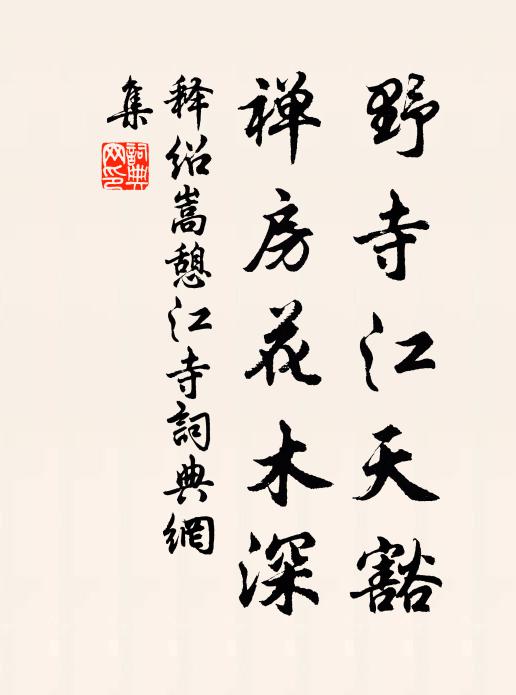 野寺江天豁
禅房花木深
释绍嵩憩江寺詞典網
集
詞典網印